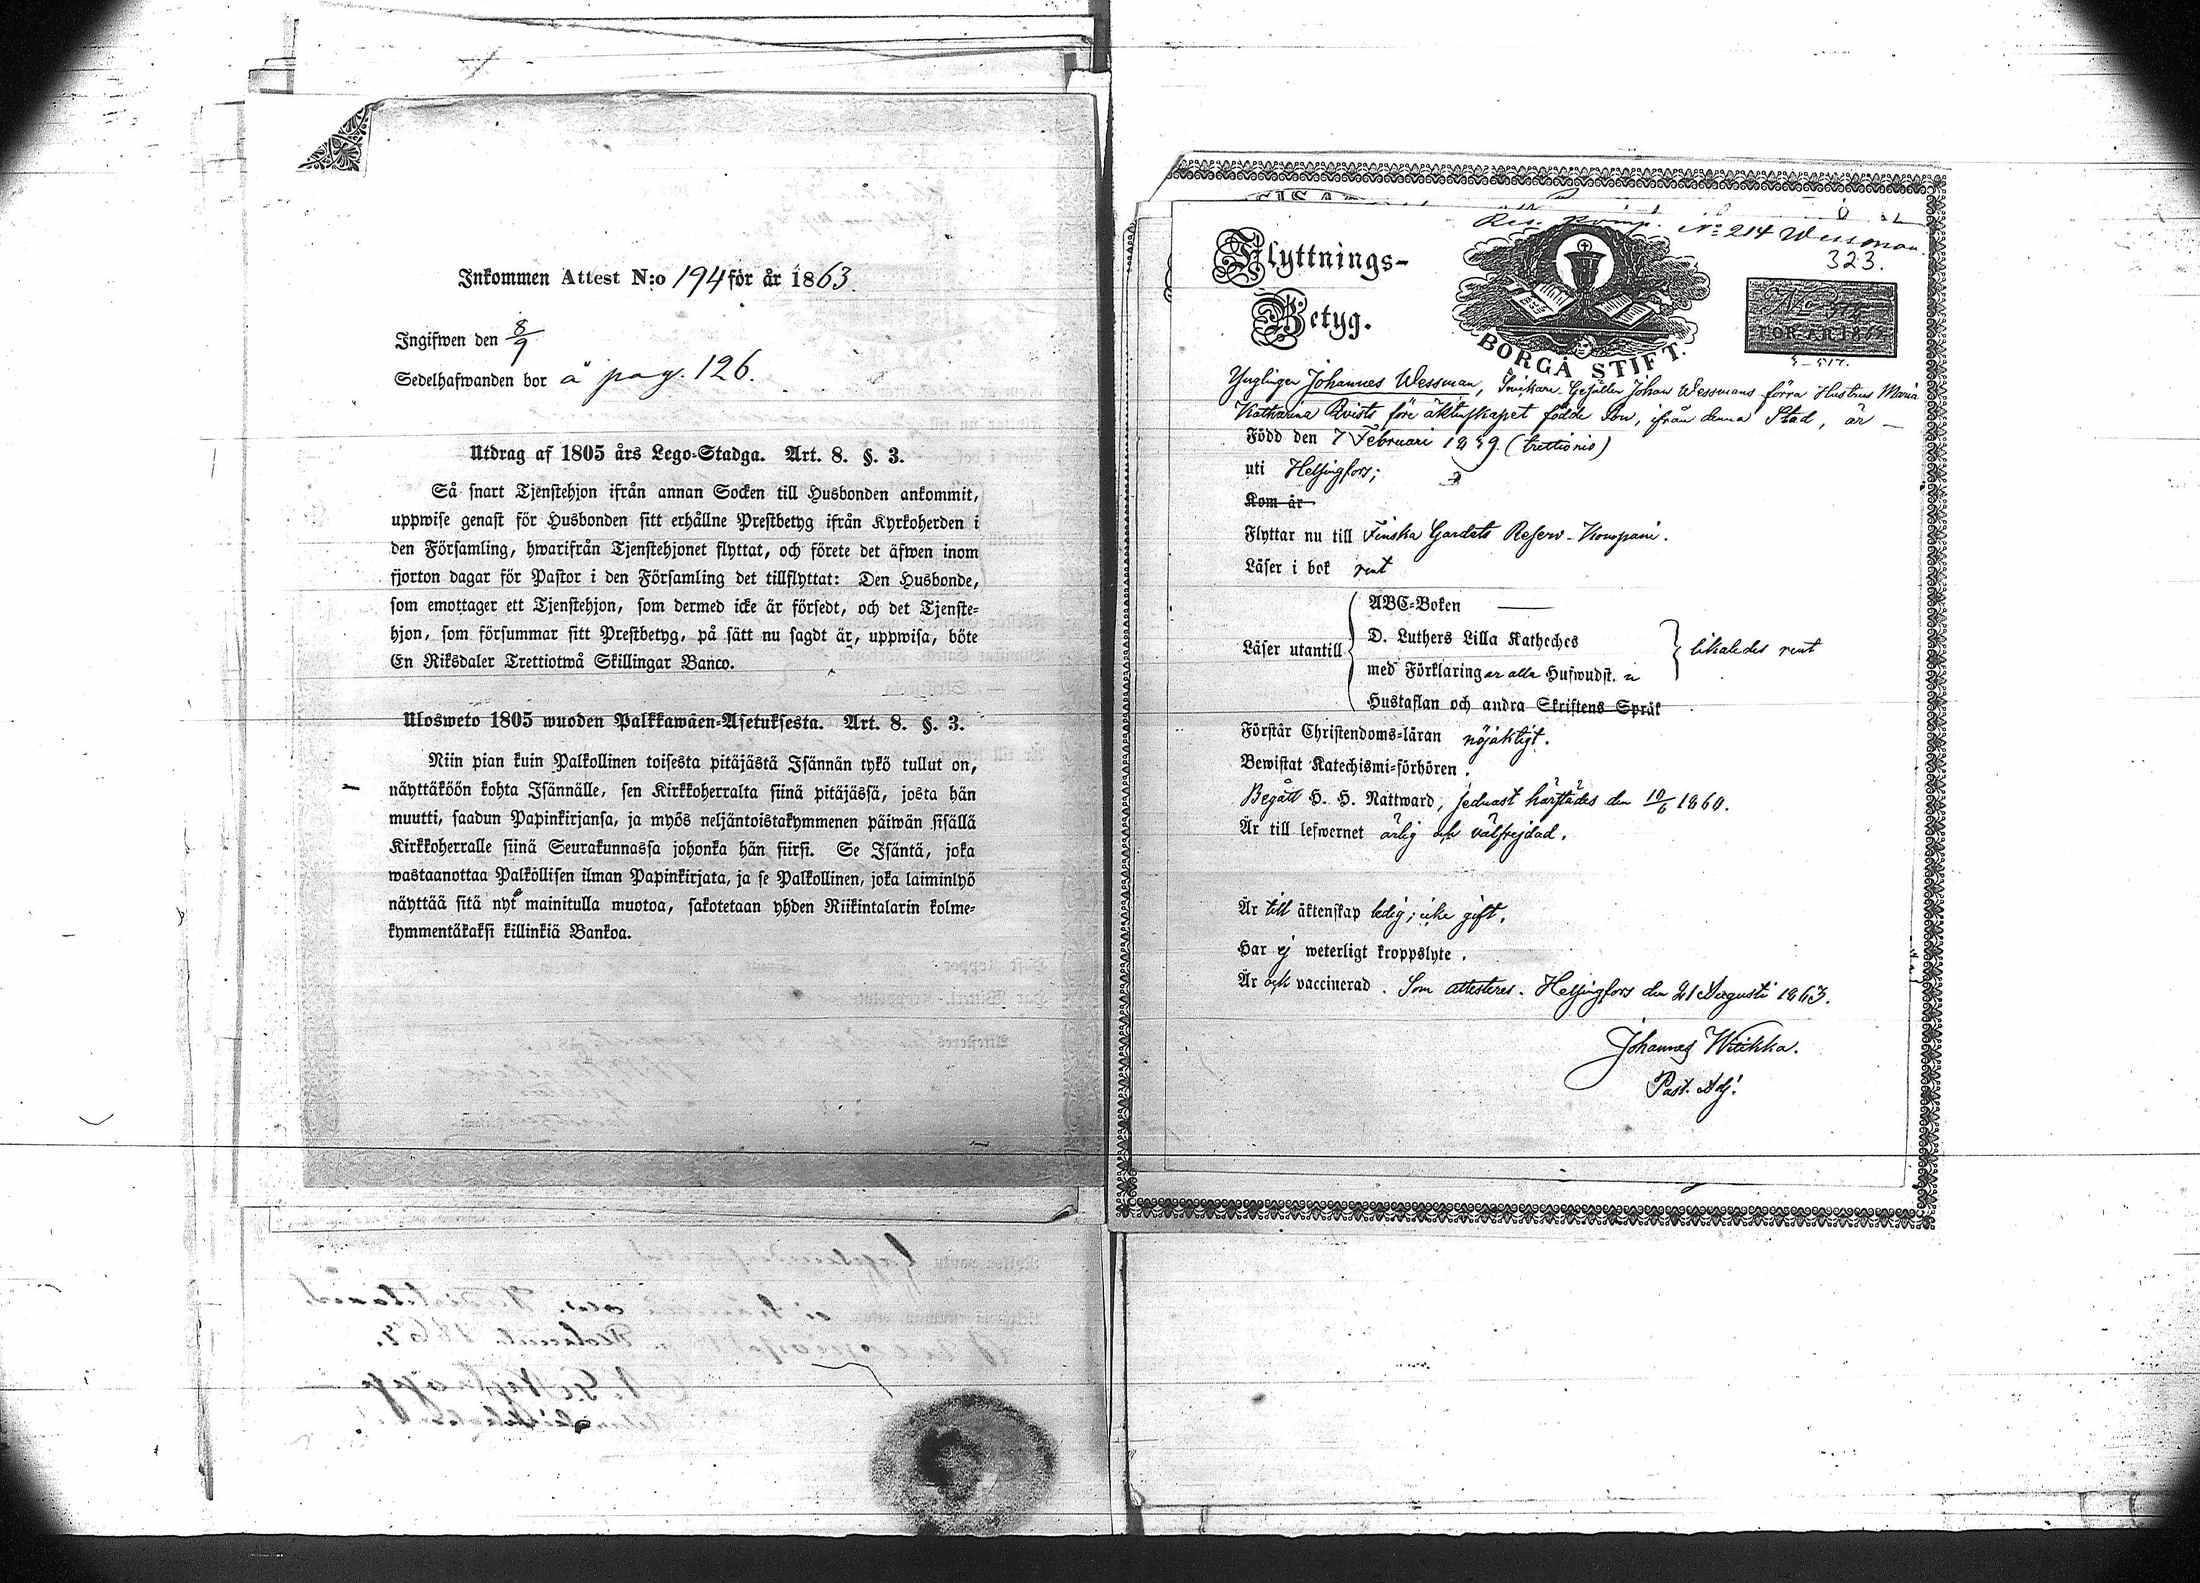 Inkommen Attest N:o 194 för år 1863.
Ingifwen den 8/9
Sedelhafwanden bor å pag. 126.
Utdrag af 1805 års Lego-Stadga. Art. 8. §. 3.
Så snart Tjenstehjon ifrån annan Socken till Husbonden ankommit,
uppwise genast för Husbonden sitt erhållne Prestbetyg ifrån Kyrkoherden i
den Församling, hwarifrån Tjenstehjonet flyttat, och förete det äfwen inom
fjorton dagar för Pastor i den Församling det tillflyttat: Den Husbonde,
som emottager ett Tjenstehjon, som dermed icke är försedt, och det Tjenste-
hjon, som försummar sitt Prestbetyg, på sätt nu sagdt är, uppwisa, böte
En Riksdaler Trettiotwå Skillingar Banco.
Ulosweto 1805 wuoden Palkkawäen-Asetuksesta. Art. 8. §. 3.
Niin pian kuin Palkollinen toisesta pitäjästä Isännän tykö tullut on,
näyttäköön kohta Isännälle, sen Kirkkoherralta siinä pitäjässä, josta hän
muutti, saadun Papinkirjansa, ja myös neljäntoistakymmenen päiwän sisällä
Kirkkoherralle siinä Seurakunnassa johonka hän siirsi. Se Isäntä, joka
wastaanottaa Palkollisen ilman Papinkirjata, ja se Palkollinen, joka laiminlyö
näyttää sitä nyt mainitulla muotoa, sakotetaan yhden Riikintalarin kolme-
kymmentäkaksi killinkiä Bankoa.
Res. Komp. No 214 Wessman
323.
Flyttnings-
Betyg.
BORGÅ STIFT.
FÖR ÅR 186
Ynglingen Johannes Wessman, Snickare-Gesällen Johan Wessmans förra Hustrus Maria
Katharina Qvists före äktenskapet födde Son, ifrån denna Stad, är
Född den 7 Februari 1839. (trettionio)
uti Helsingfors;
Kom år
Flyttar nu till Finska Gardets Reserv-Kompani.
Läser i bok rent
ABC-Boken
Läser utantill D. Luthers Lilla Katheches
med Förklaringar alla Hufwudst. likaledes rent
Hustaflan och andra Skriftens Språk
Förstår Christendoms-läran nöjaktigt.
Bewistat Katechismi-förhören.
Begått H. H. Nattward, sednast härstädes den 10/6 1860.
Är till lefwernet ärlig och välfrejdad.
Är till äktenskap ledig; icke gift.
Har ej weterligt kroppslyte.
Är ock vaccinerad. Som attesteres. Helsingfors den 21 Augusti 1863.
Johannes Witikka.
Past. Adj.